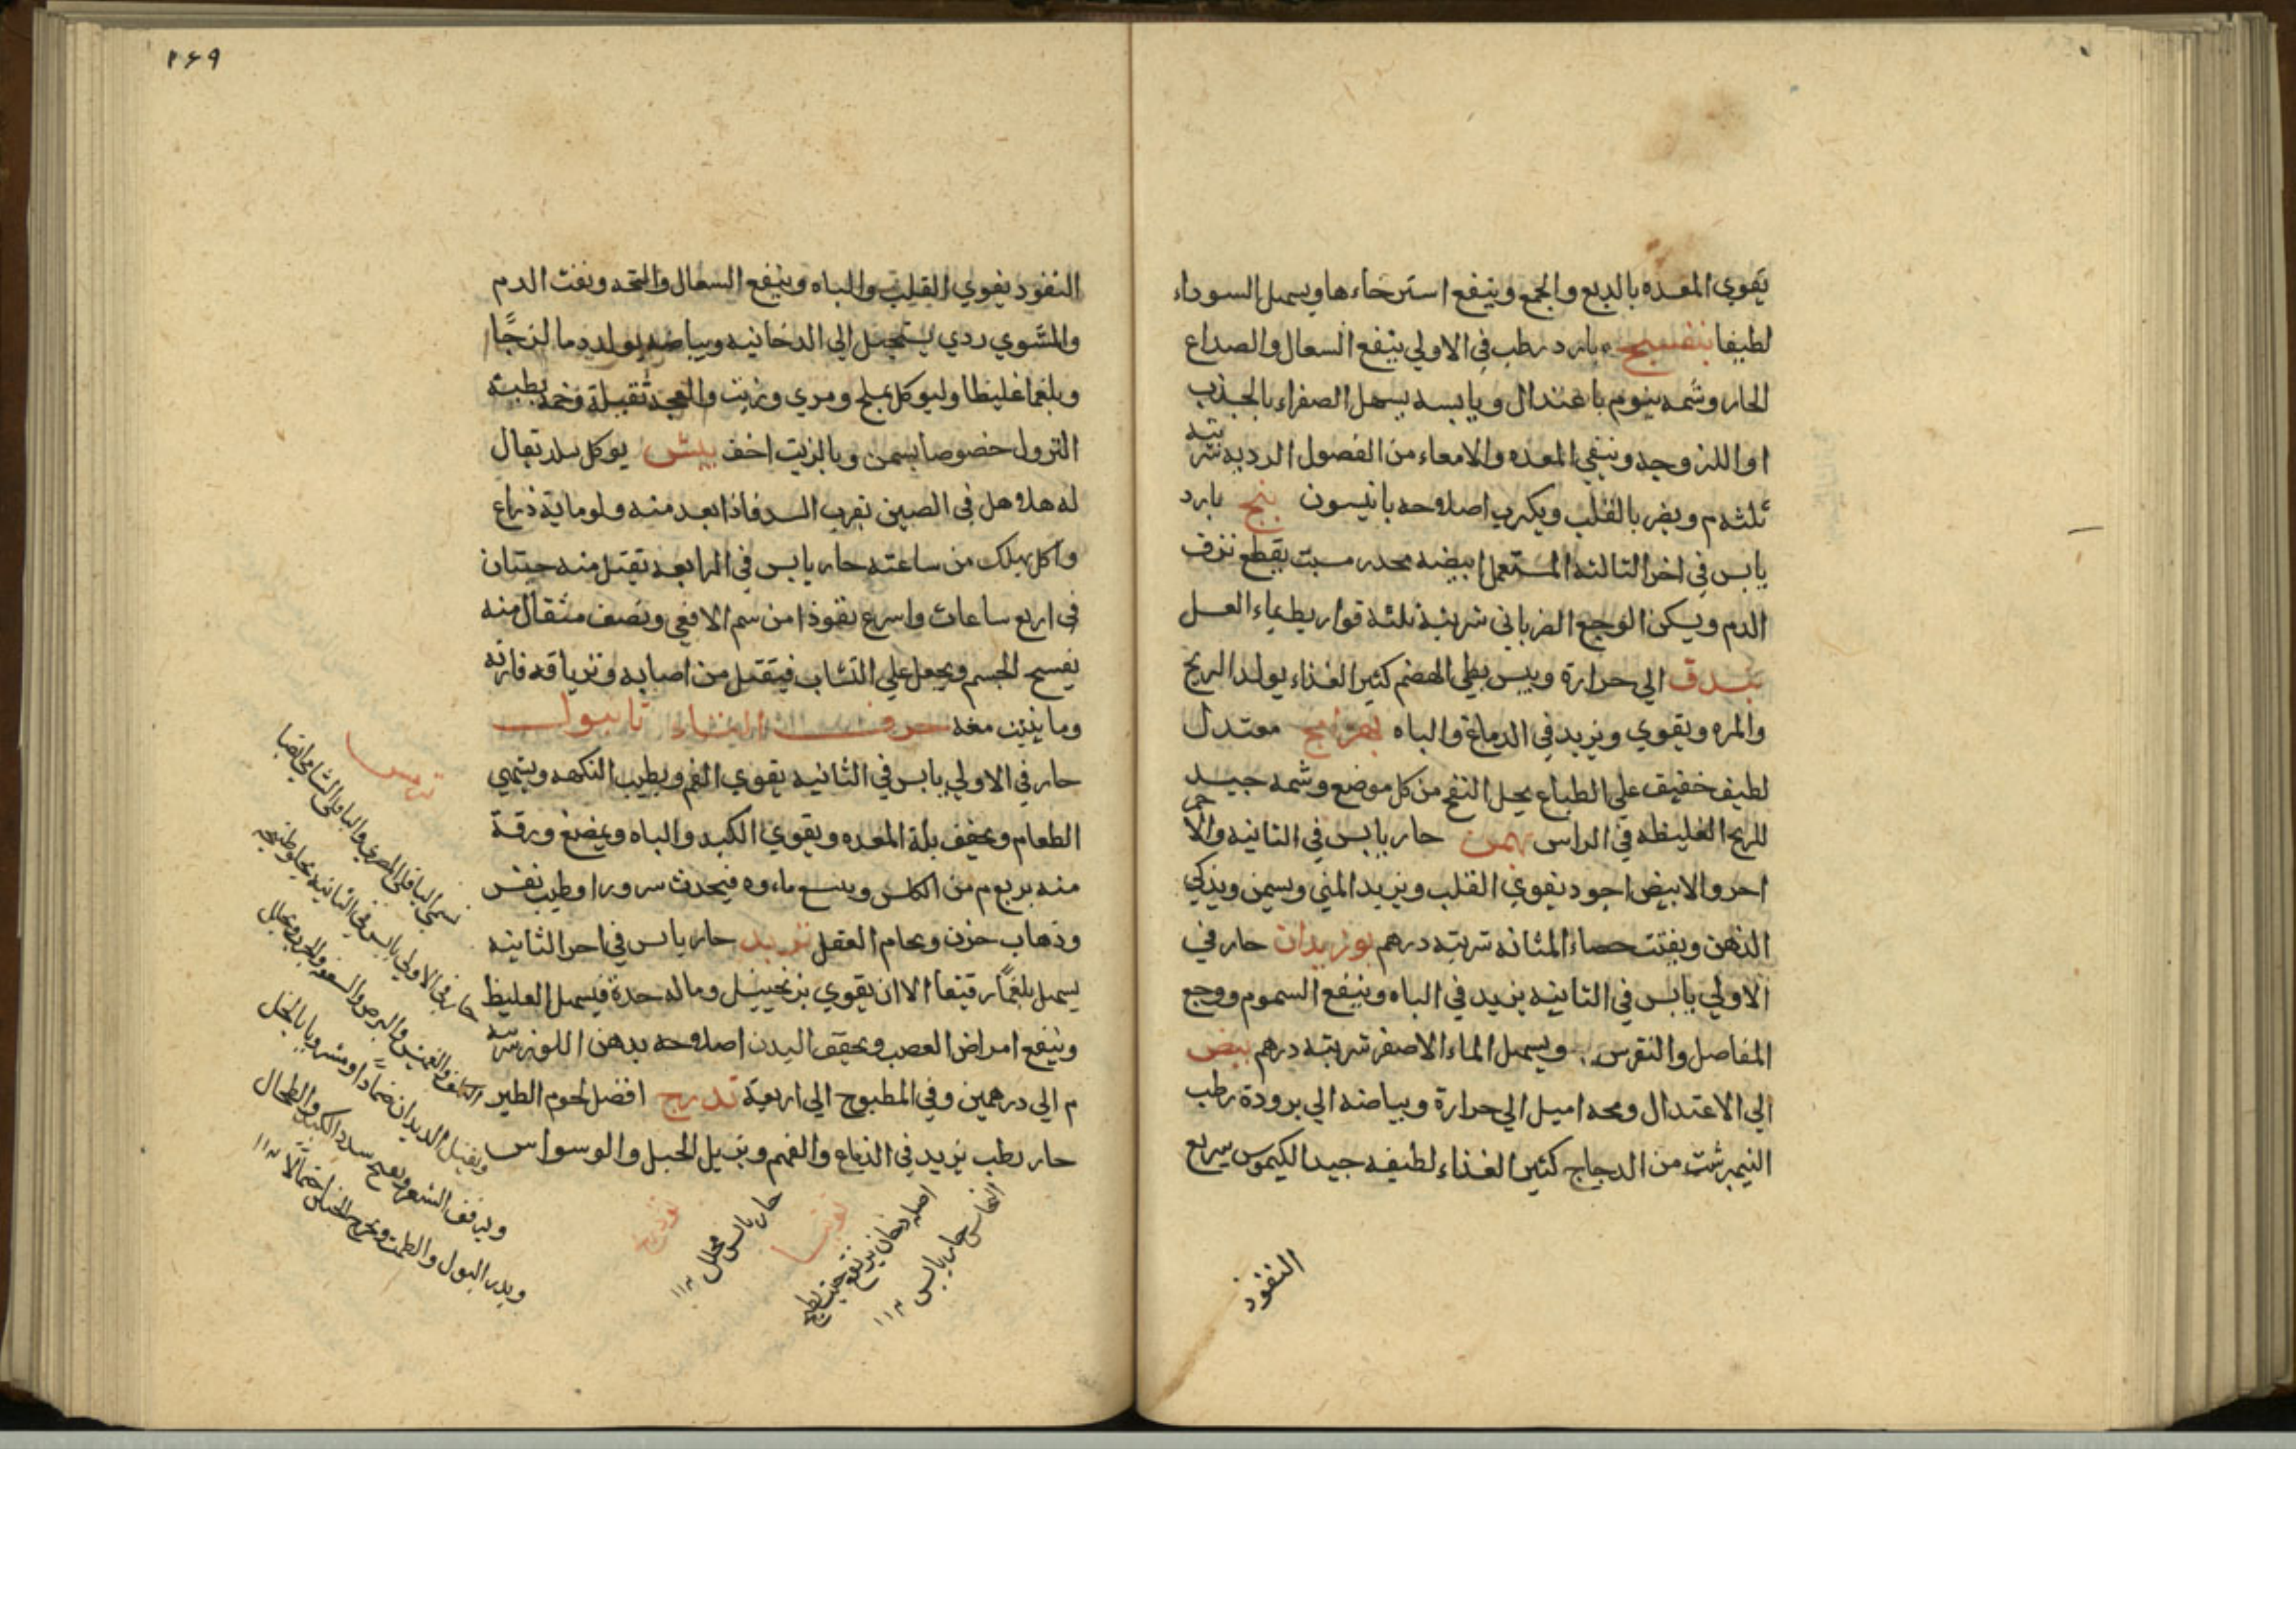 يقوي المعده بالدبع والجمع وينفع استرخاءها ويسهل السوداء
لطيفا بنفسج بارد رطب في الاولي ينفع السعال والصداع
الحار وشمه ينوم باعتدال ويابسه يسهل الصفراء بالجذب
او اللزوجه وينقي المعده والامعاء من الفضول الرديه شربته
ثلثه م ويضر بالقلب ويكرب اصلاحه بانيسون بنج بارد
يابس في اخر الثالثه المستعمل ابيضه مخدر مسبت يقطع نزف
الدم ويسكن الوجع الضرباني شربته ثلثة قراريط بماء العسل
بندق الي حرارة ويبس بطي الهضم كثير الغذاء يولد الريح
والمره ويقوي ويزيد في الدماغ والباه بهرامج معتدل
لطيف خفيف علي الطباع يحل النفخ من كل موضع وشمه جيد
للريح الغليظه في الراس بهمن حار يابس في الثانيه والاحمر
احر والابيض اجود يقوي القلب ويزيد المني ويسمن ويذكي
الذهن ويفتت حصاء المثانه شربته درهم بوزيدان حار في
الاولي يابس في الثانيه يزيد في الباه وينفع السموم ووجع
المفاصل والنقرس ويسهل الماء الاصفر شربته درهم بيض
الي الاعتدال ومحه اميل الي حرارة وبياضه الي برودة رطب
النيمبرشت من الدجاج كثير الغذاء لطيفه جيد الكيموس سريع
النفوذ
٢٦٩
النفوذ يقوي القلب والباه وينفع السعال والبحه ونفث الدم
والمشوي ردي يستحيل الي الدخانيه وبياضه يولد دما لزجًا
وبلغما غليظا وليوكل بملح ومري وزيت والعجه ثقيلة وخمه بطيئه
النزول خصوصا بسمن وبالزيت اخف بيش يوكل ببلد يقال
له هلاهل في الصين بقرب السد فاذا بعد منه ولو ماية ذراع
واكل يهلك من ساعته حار يابس في الرابعه يقتل منه حبتان
في اربع ساعات واسرع نفوذا من سم الافعي ونصف مثقال منه
يفسح الجسم ويجعل علي النشاب فيقتل من اصابه وترياقه فارة
وما ينبت معه حرف التاء تانبول
حار في الاولي يابس في الثانيه يقوي الفم ويطيب النكهه ويشهي
الطعام ويجفف بلة المعده ويقوي الكبد والباه ويمضغ ورقة
منه بربع م من الكلس ويبلع ماءه فيحدث سرورا وطيب نفس
وذهاب حزن ويحام العقل تربد حار يابس في اخر الثانيه
يسهل بلغمًا رقيقا الا ان يقوي بزنجبيل وماله حدة فيسهل الغليظ
وينفع امراض العصب ويجفف البدن اصلاحه بدهن اللوز شربته
م الي درهمين وفي المطبوخ الي اربعة تدرج افضل لحوم الطير
حار رطب يزيد في الدماغ والفهم ويزيل الخبل والوسواس
ترمس
يسمي الباقلي المصري والباقلي الشامي ايضا
حار في الاولي يابس في الثانيه يجلو طبيخه
الكلف والنمش والبرص والسعفه والجرب ويحلل
ويقتل الديدان ضمادًا ومشروبا بالخل
ويرقق الشعر ويفتح سدد الكبد والطحال
ويدر البول والطمث ويخرج الجنين احتمالًا ١١٢
توتيا
اصله دخان يرتفع حيث يطبخ
النحاس حار يابس ١١٢
حار يابس محلل ١١٢